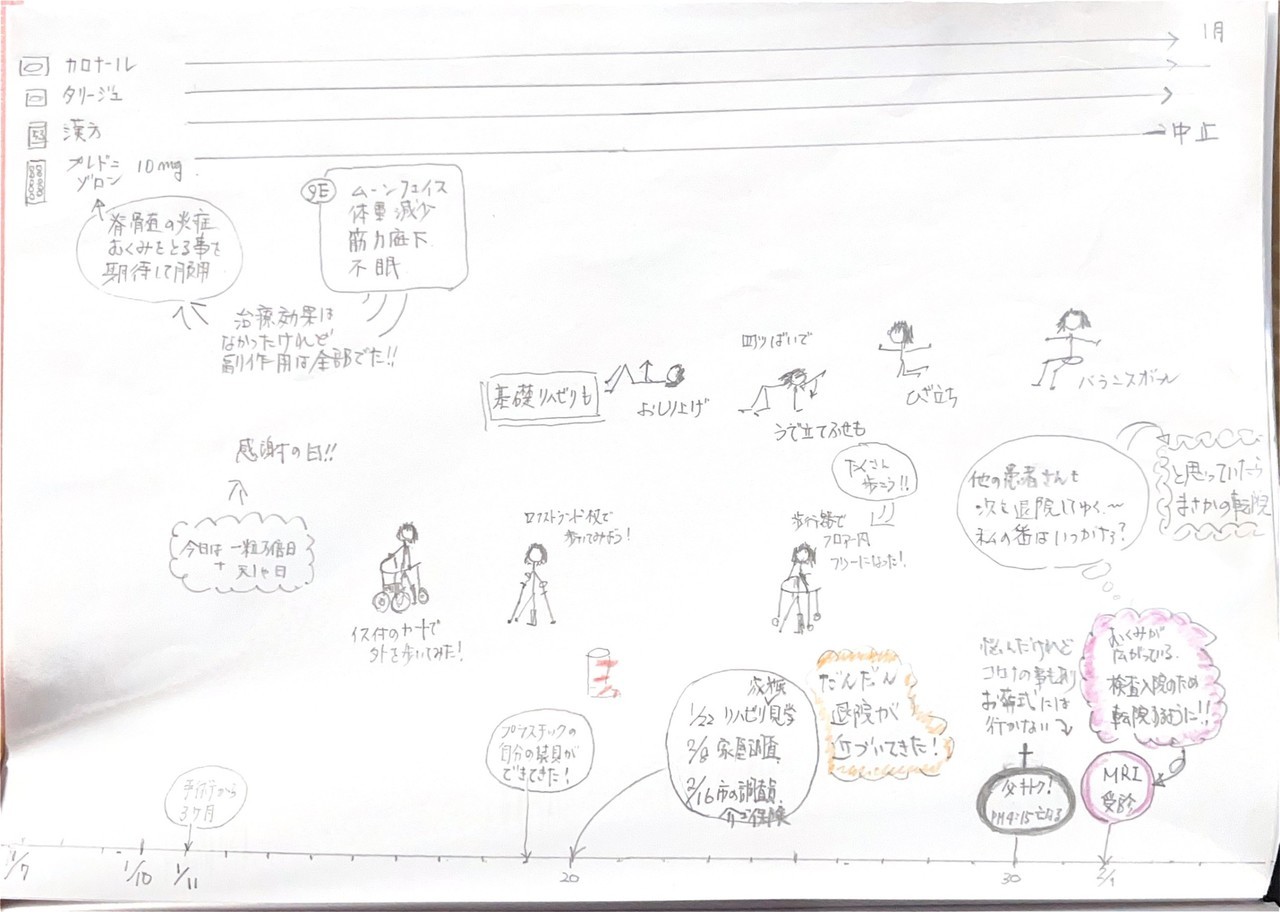 1月
カロナール
タリージェ
漢方
中止
プレドニ
ゾロン
10mg
脊骨直の炎症
むくみをとる事を
期待して服用
SE
ムーンフェイス
体重減少
筋力低下
不眠
治療効果は
なかったけれど
副作用は全部でた!!
基礎リハビリも
おしり上げ
四ツばいで
うで立てふせも
ひざ立ち
バランスボール
感謝の日!!
今日は 一粒万倍日
+ 天しゃ日
イス付のカートで
外を歩いてみた!
ロフストランド杖で
歩いてみよう!
たくさん
歩こう!!
歩行器で
フロアー内
フリーになった!
他の患者さんも
次々退院してゆく〜
私の番はいつかな?
と思っていたら
まさかの転院
手術から
3ヶ月
プラスチックの
自分の装具が
できてきた!
家族
1/22 リハビリ見学
2/8 家屋調査
2/16 市の調査員
介ゴ保険
だんだん
退院が
近づいてきた!
悩んだけれど
コロナの事も有り
お葬式には
行かない
父キトク!
PM4:15亡なる
むくみが
広がっている.
検査入院のため
転院するように!!
MRI
受診
1/7
1/10
1/11
20
30
2/1